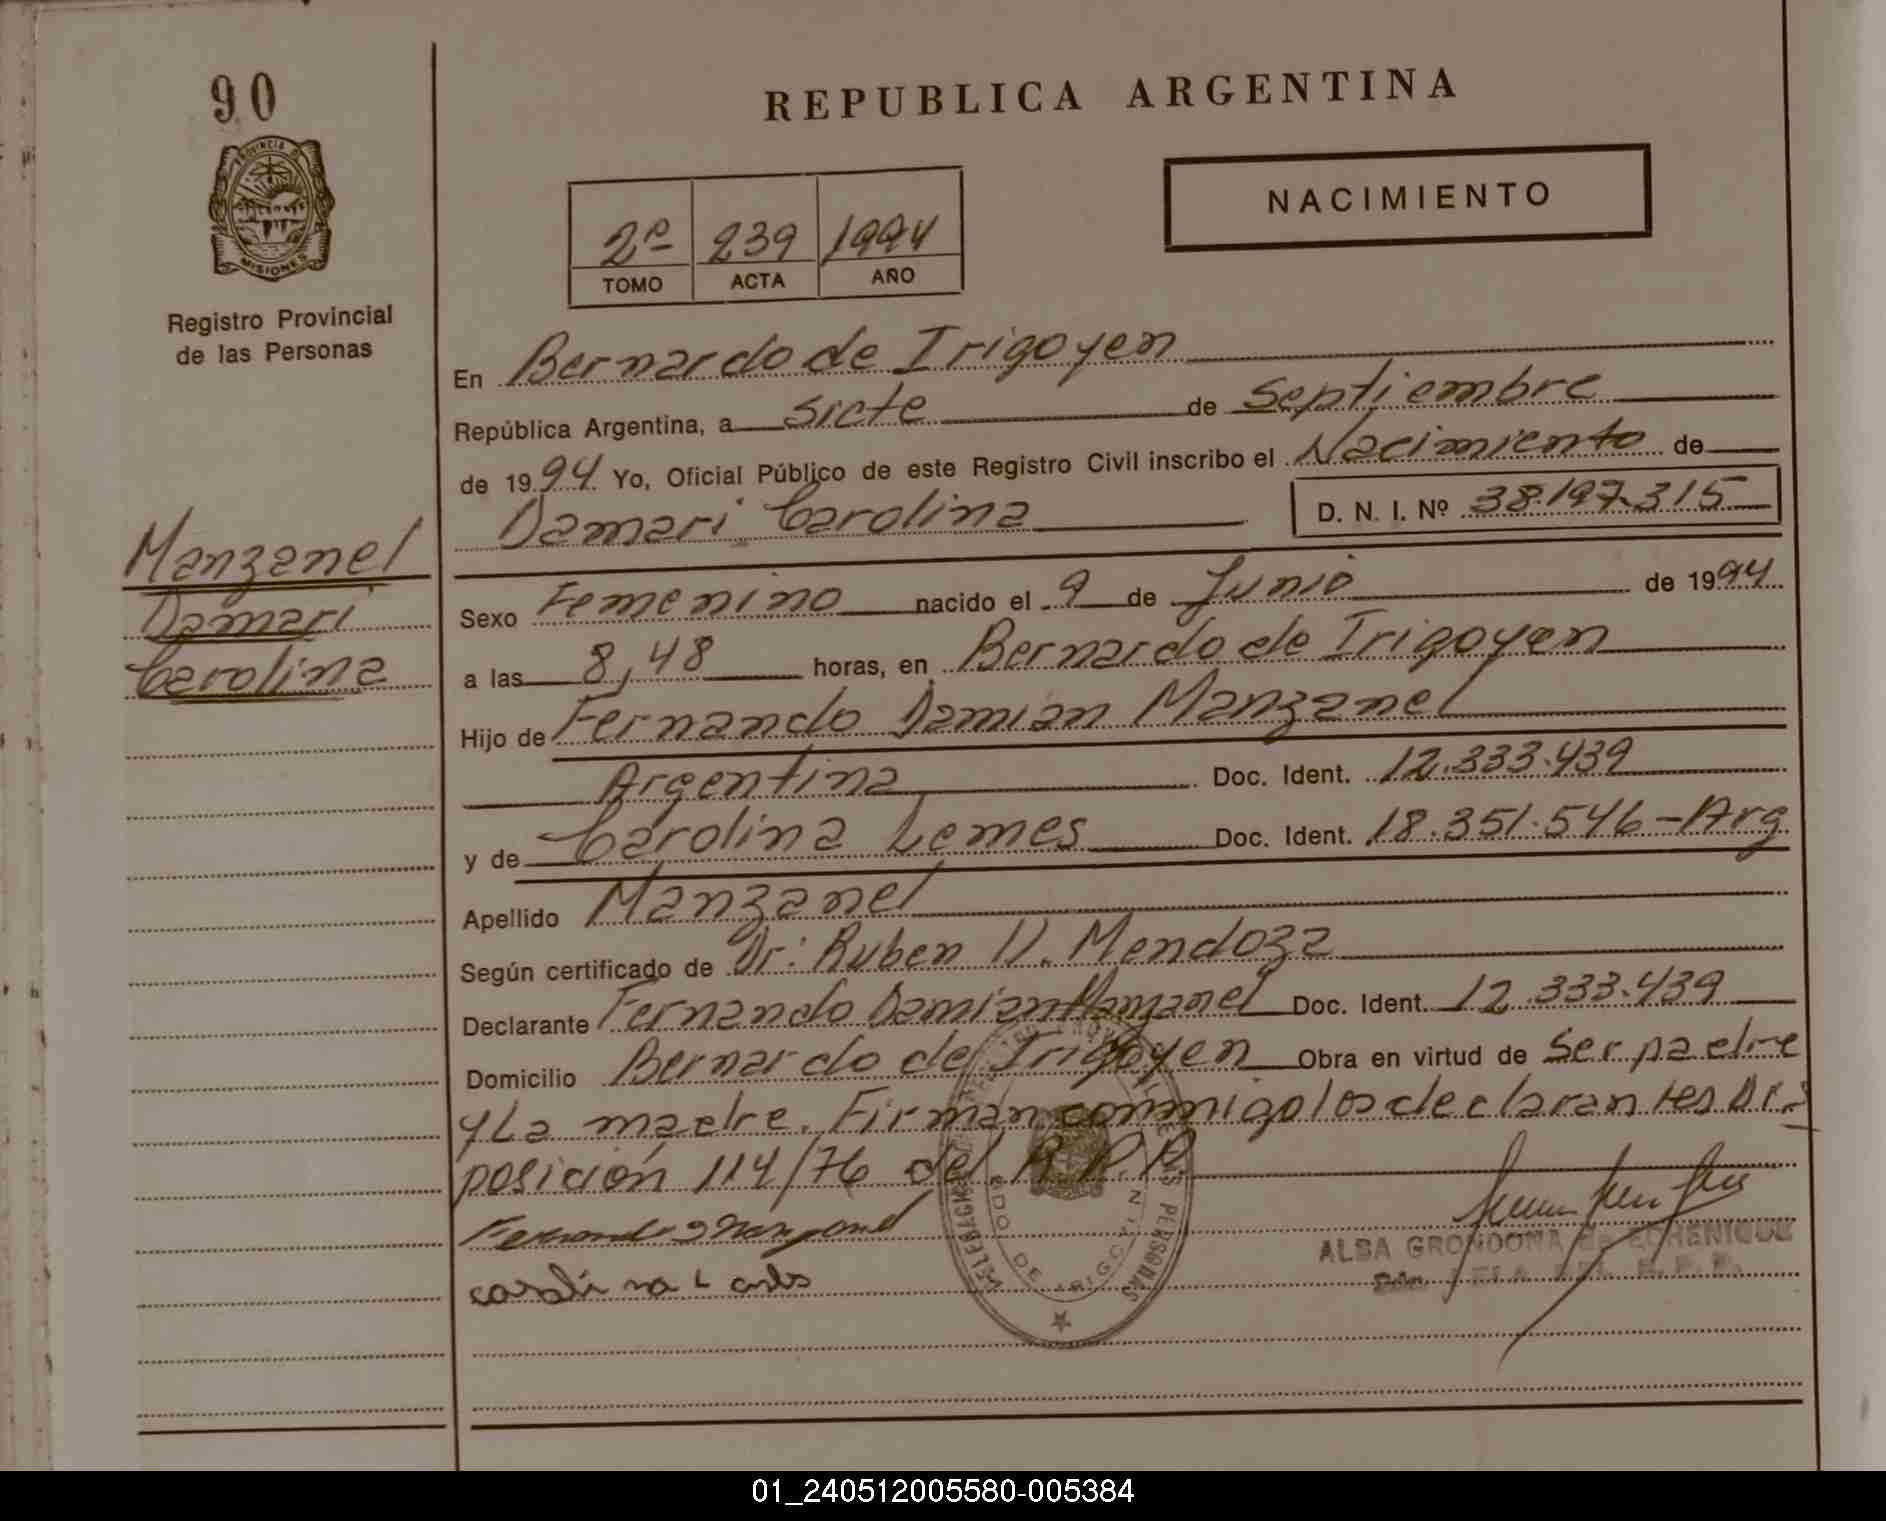 90
PROVINCIA DE
MISIONES
Registro Provincial
de las Personas
Manzanel
Damari
Carolina
REPUBLICA ARGENTINA
NACIMIENTO
2º 239 1994
TOMO ACTA AÑO
En Bernardo de Irigoyen
República Argentina, a siete de Septiembre
de 1994 Yo, Oficial Público de este Registro Civil inscribo el Nacimiento de
Damari Carolina D. N. I. Nº 38.197.315
Sexo Femenino nacido el 9 de Junio de 1994
a las 8,48 horas, en Bernardo de Irigoyen
Hijo de Fernando Damian Manzanel
Argentina Doc. Ident. 12.333.439
y de Carolina Lemes Doc. Ident. 18.351.546-Arg
Apellido Manzanel
Según certificado de Dr: Ruben D. Mendoza
Declarante Fernando Damian Manzanel Doc. Ident. 12.333.439
Domicilio Bernardo de Irigoyen Obra en virtud de ser padre
y La madre. Firman conmigo los declarantes Dis
posición 114/76 del R.P.P.
Fernando D Manzanel
ALBA GRONDONA de ECHENIQUE
DEL R.P.P.
01_240512005580-005384